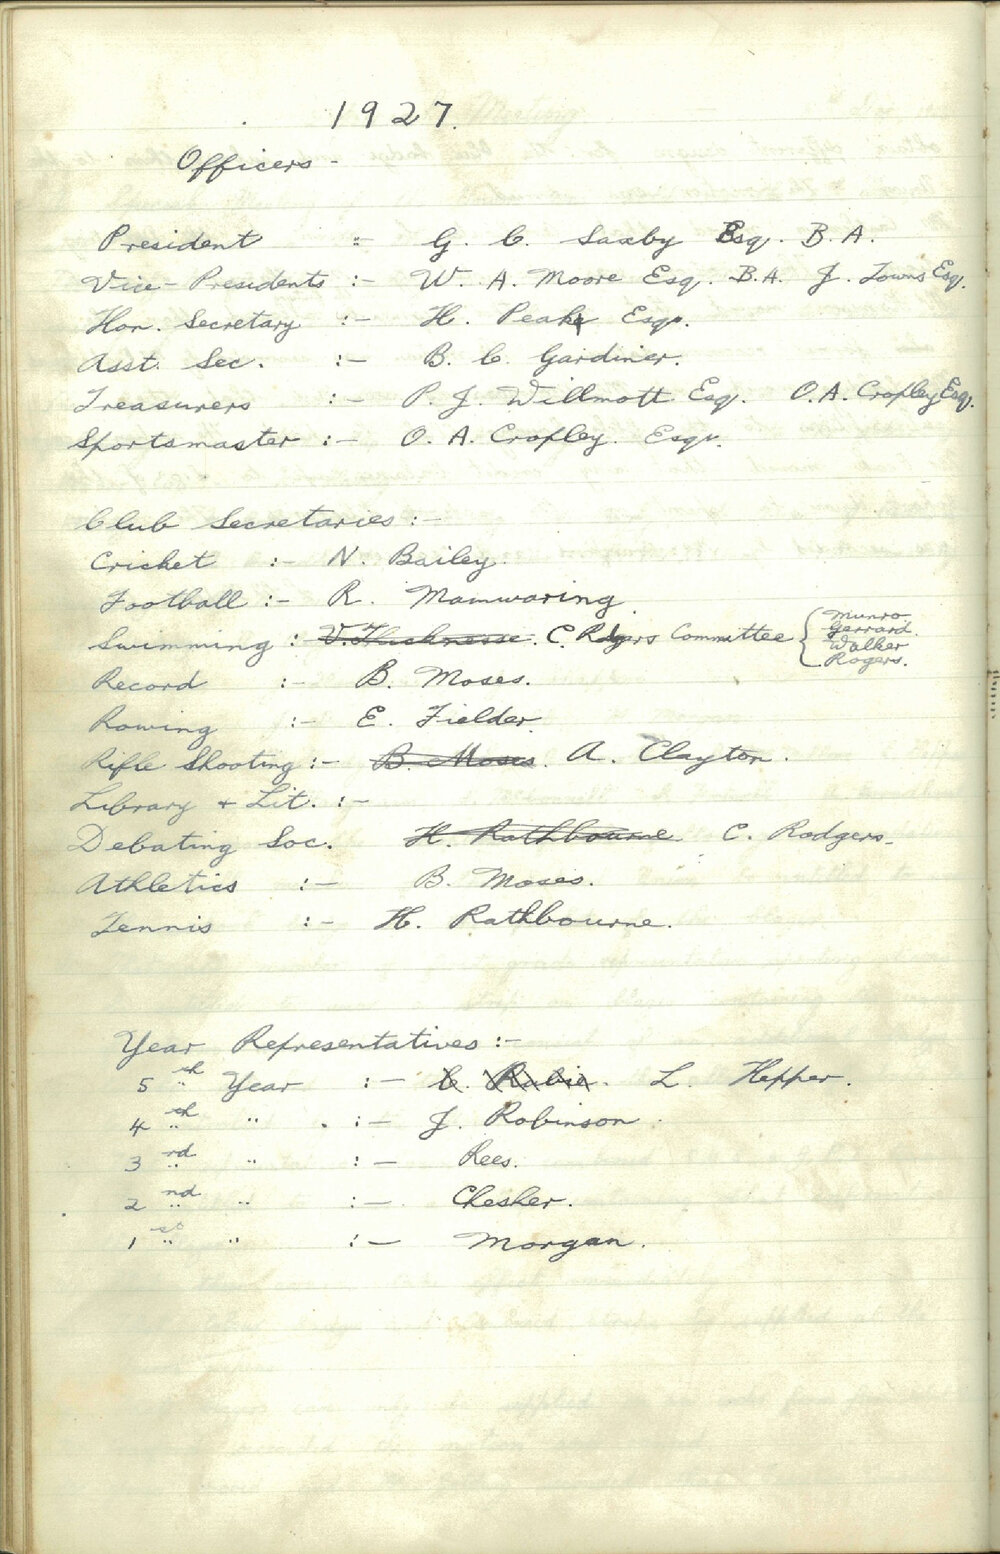 1927.
Officers -
President :- G. C. Saxby Esq. B.A.
Vice-Presidents :- W. A. Moore Esq. B.A. J. Towns Esq.
Hon. Secretary :- H. Peake Esqr.
Asst. Sec. :- B. C. Gardiner.
Treasurers :- P. J. Willmott Esq. O.A. Cropley Esq.
Sportsmaster :- O. A. Cropley. Esqr.
Club Secretaries :-
Cricket :- N. Bailey.
Football :- R. Mamwaring.
Swimming : V. Thicknesse. C. Rodgers Committee { Munro
Gerrard.
Walker
Rogers.
Record :- B. Moses.
Rowing :- E. Fielder.
Rifle Shooting :- B. Moses. A. Clayton.
Library + Lit. :-
Debating Soc. H. Rathbourne C. Rodgers.
Athletics :- B. Moses.
Tennis :- H. Rathbourne.
Year Representatives :-
5th Year :- C. Rubie. L. Hepper.
4th " :- J. Robinson.
3rd " :- Rees.
2nd " :- Chesher.
1st " :- Morgan.